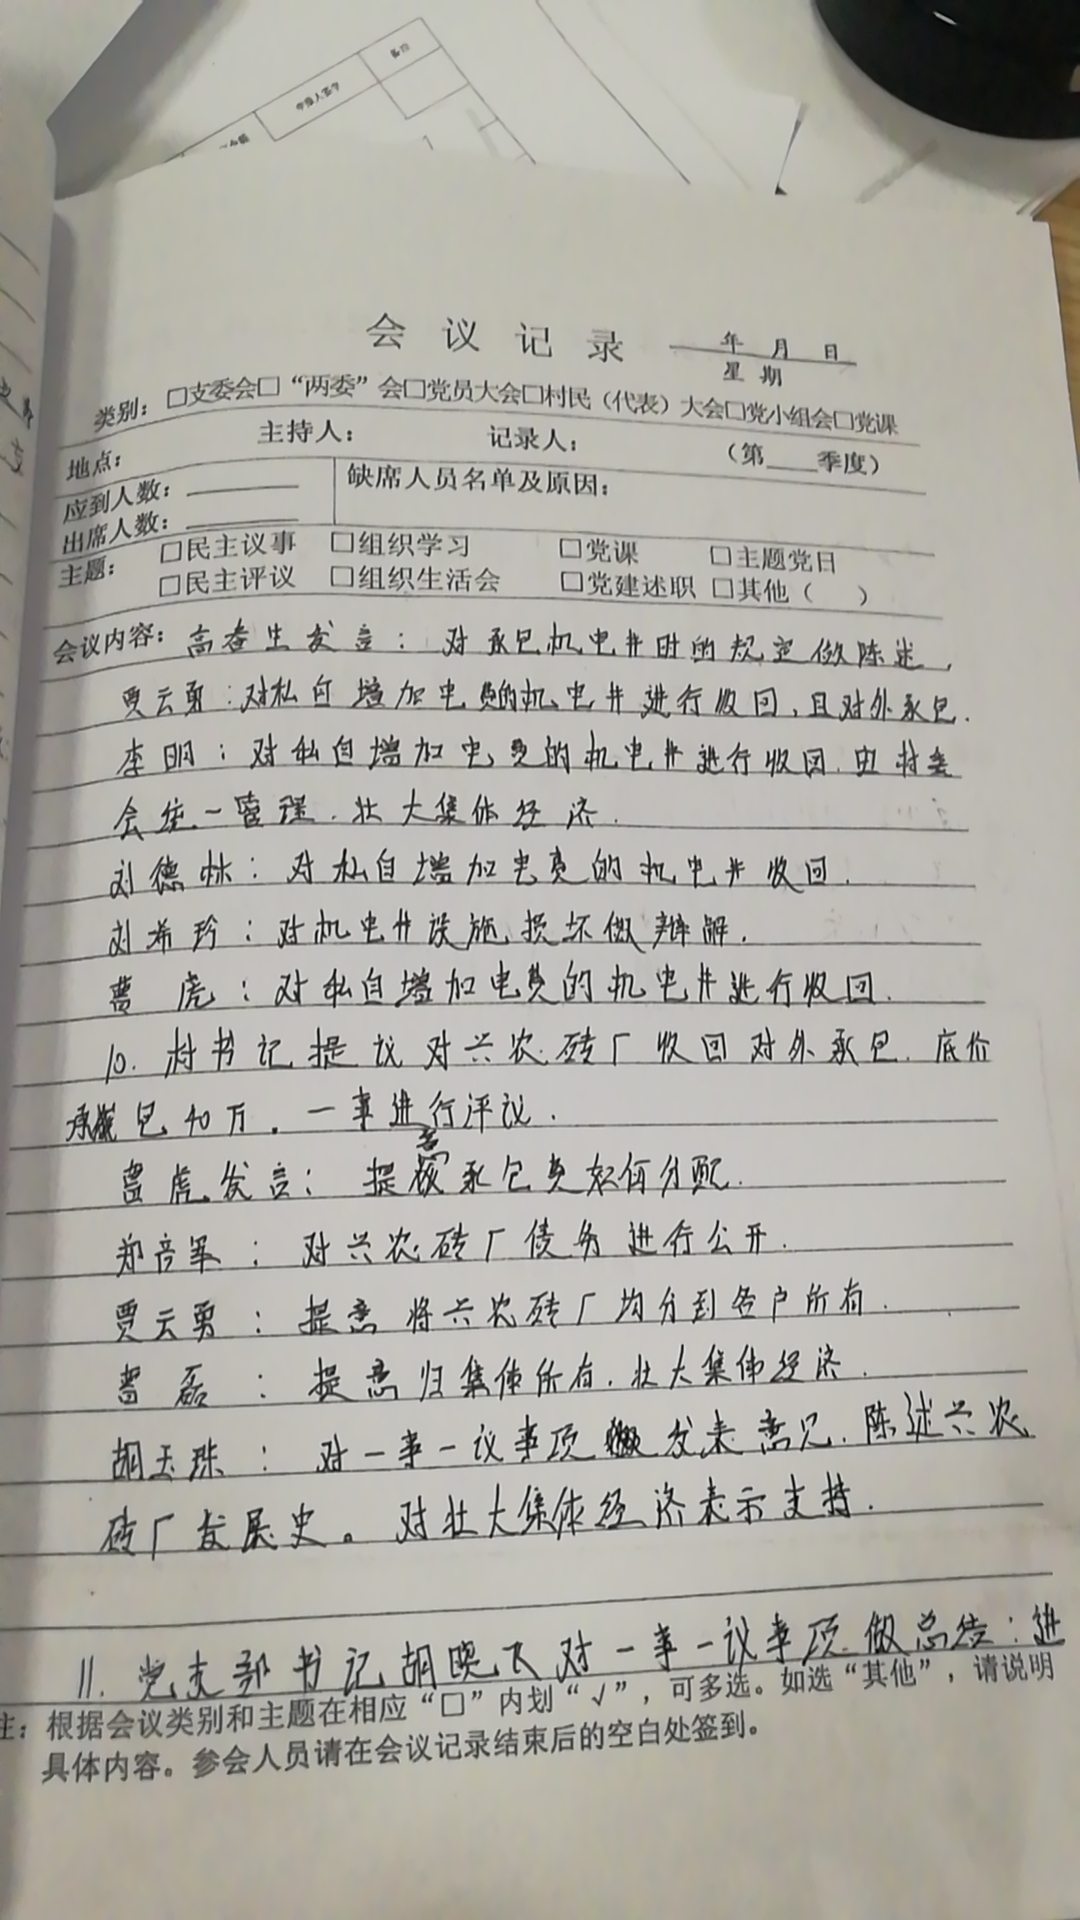 备注
申报人签字
会议记录
年 月 日
星期
类别：□支委会□“两委”会□党员大会□村民（代表）大会□党小组会□党课
地点： 主持人： 记录人： （第 季度）
应到人数： 缺席人员名单及原因：
出席人数：
主题： □民主议事 □组织学习 □党课 □主题党日
□民主评议 □组织生活会 □党建述职 □其他（ ）
会议内容：高春生发言：对承包机电井时的规定做陈述，
贾云勇：对私自增加电费的机电井进行收回，且对外承包．
李明：对私自增加电费的机电井进行收回．由村委
会统一管理．壮大集体经济．
刘德林：对私自增加电费的机电井收回．
刘希珍：对机电井设施损坏做辩解．
曹虎：对私自增加电费的机电井进行收回．
10．村书记提议对兴农砖厂收回对外承包．底价
承包40万．一事进行评议．
曹虎发言：提 承包费如何分配．
郑音军：对兴农砖厂债务进行公开．
贾云勇：提意将兴农砖厂均分到各户所有．
曹磊：提意归集体所有．壮大集体经济．
胡玉珠：对一事一议事项 发表意见．陈述兴农
砖厂发展史。对壮大集体经济表示支持．
11．党支部书记胡晓飞对一事一议事项做总结：进
注：根据会议类别和主题在相应“□”内划“√”，可多选。如选“其他”，请说明
具体内容。参会人员请在会议记录结束后的空白处签到。